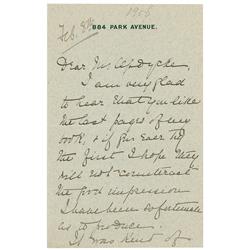 1906
Feb. 8th
884 PARK AVENUE.
Dear Mr. Updyke
I am very glad
to hear that you like
the last pages of my
book, & if you ever try
the first I hope they
will not counteract
the good impression
I have been so fortunate
as to produce.
It was kind of